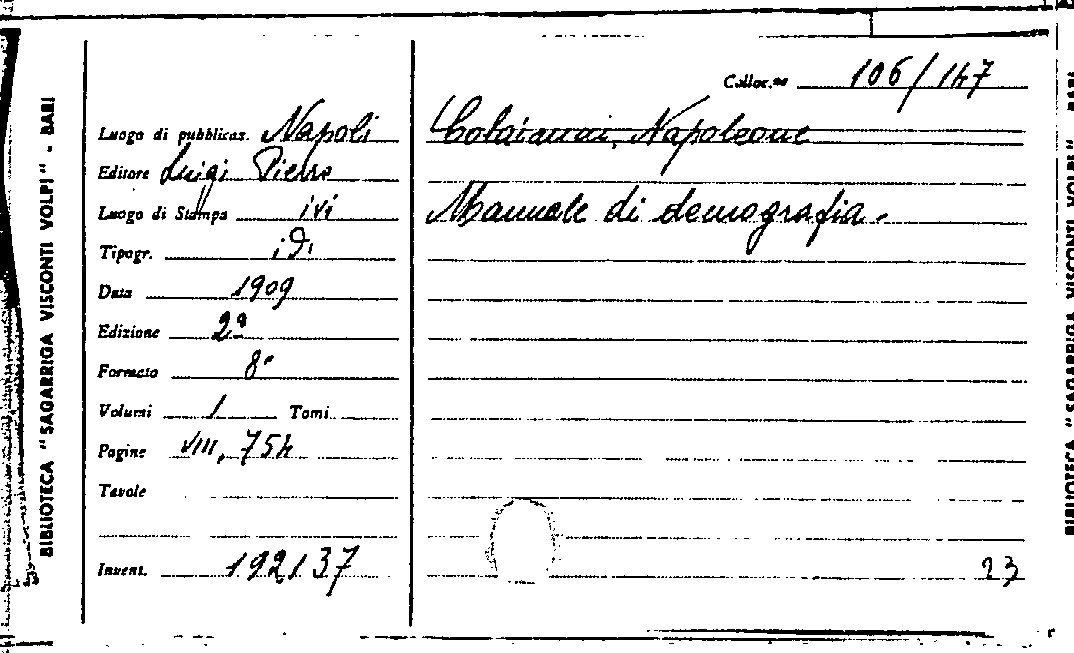 BIBLIOTECA "SAGARRIGA VISCONTI VOLPI" - BARI
Colloc.ne 106/147
Luogo di pubblicaz. Napoli
Editore Luigi Pierro
Luogo di Stampa ivi
Tipogr. id.
Data 1909
Edizione 2ª
Formato 8°
Volumi 1 Tomi
Pagine VIII, 754
Tavole
Invent. 192137
Colaianni, Napoleone
Manuale di demografia.
23
BIBLIOTECA "SAGARRIGA VISCONTI VOLPI" BARI